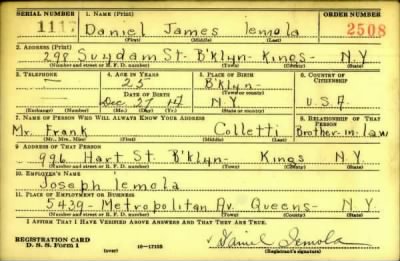 SERIAL NUMBER 1. NAME (Print) ORDER NUMBER
1117 Daniel James Iemola 2508
(First) (Middle) (Last)
2. ADDRESS (Print)
798 Suydam St- B'klyn- Kings- N.Y
(Number and street or R. F. D. number) (Town) (County) (State)
3. TELEPHONE 4. AGE IN YEARS 5. PLACE OF BIRTH 6. COUNTRY OF CITIZENSHIP
25 B'klyn-
DATE OF BIRTH (Town or county)
Dec 27 14 N.Y U.S.A.
(Exchange) (Number) (Mo.) (Day) (Yr.) (State or country)
7. NAME OF PERSON WHO WILL ALWAYS KNOW YOUR ADDRESS 8. RELATIONSHIP OF THAT PERSON
Mr. Frank Colletti Brother-in-law
(Mr., Mrs., Miss) (First) (Middle) (Last)
9. ADDRESS OF THAT PERSON
996 Hart St. B'klyn- Kings N.Y.
(Number and street or R. F. D. number) (Town) (County) (State)
10. EMPLOYER'S NAME
Joseph Iemola
11. PLACE OF EMPLOYMENT OR BUSINESS
5439- Metropolitan Av. Queens- N.Y
(Number and street or R. F. D. number) (Town) (County) (State)
I AFFIRM THAT I HAVE VERIFIED ABOVE ANSWERS AND THAT THEY ARE TRUE.
REGISTRATION CARD
D. S. S. Form 1 (over) 16-17105 Daniel Iemola
(Registrant's signature)